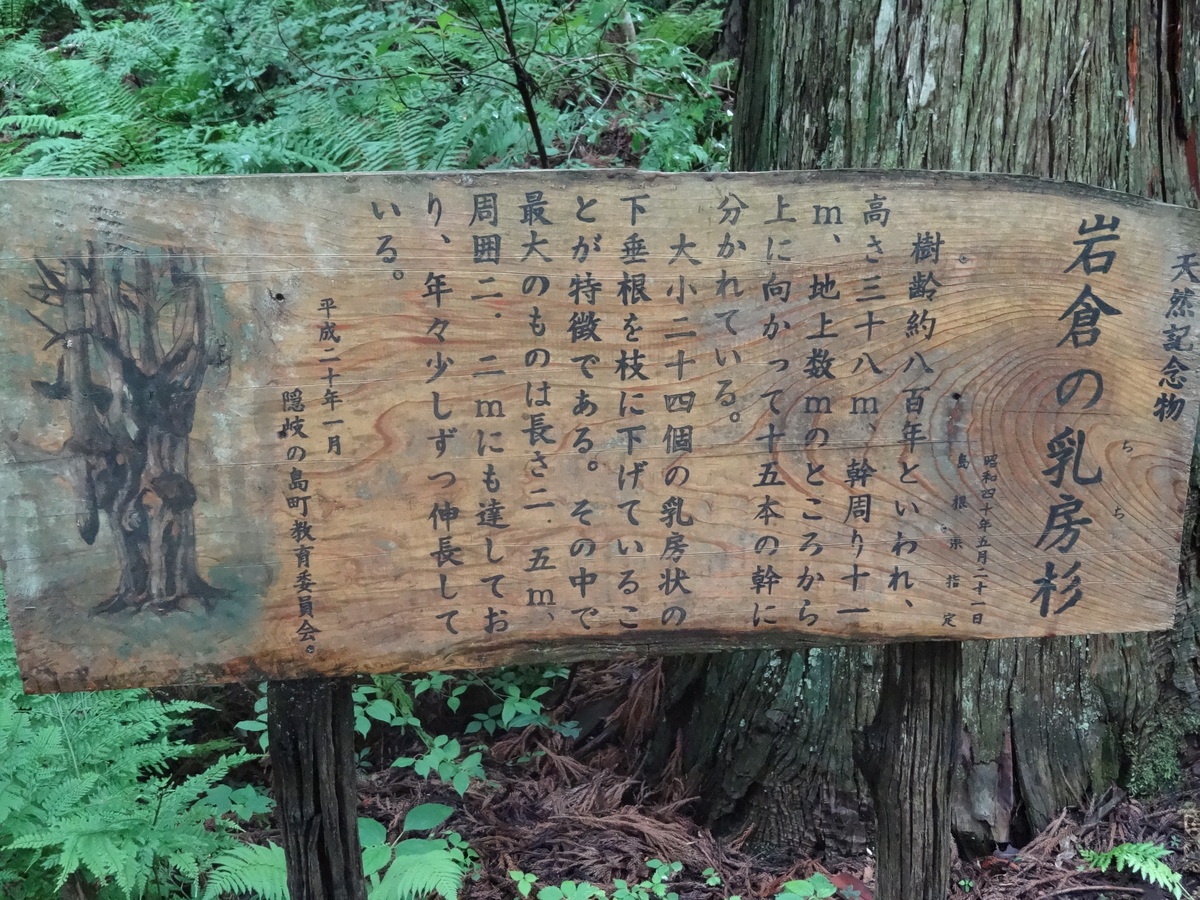 天然記念物
岩倉の乳房杉
ちち
昭和四十年五月二十一日
島根県指定
樹齢約八百年といわれ、
高さ三十八m、幹周り十一
m、地上数mのところから
上に向かって十五本の幹に
分かれている。
大小二十四個の乳房状の
下垂根を枝に下げているこ
とが特徴である。その中で
最大のものは長さ二.五m、
周囲二.二mにも達してお
り、年々少しずつ伸長して
いる。
平成二十年一月
隠岐の島町教育委員会。